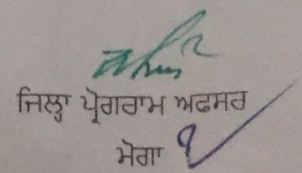 ਜਿਲ੍ਹਾ ਪ੍ਰੋਗਰਾਮ ਅਫਸਰ
ਮੋਗਾ